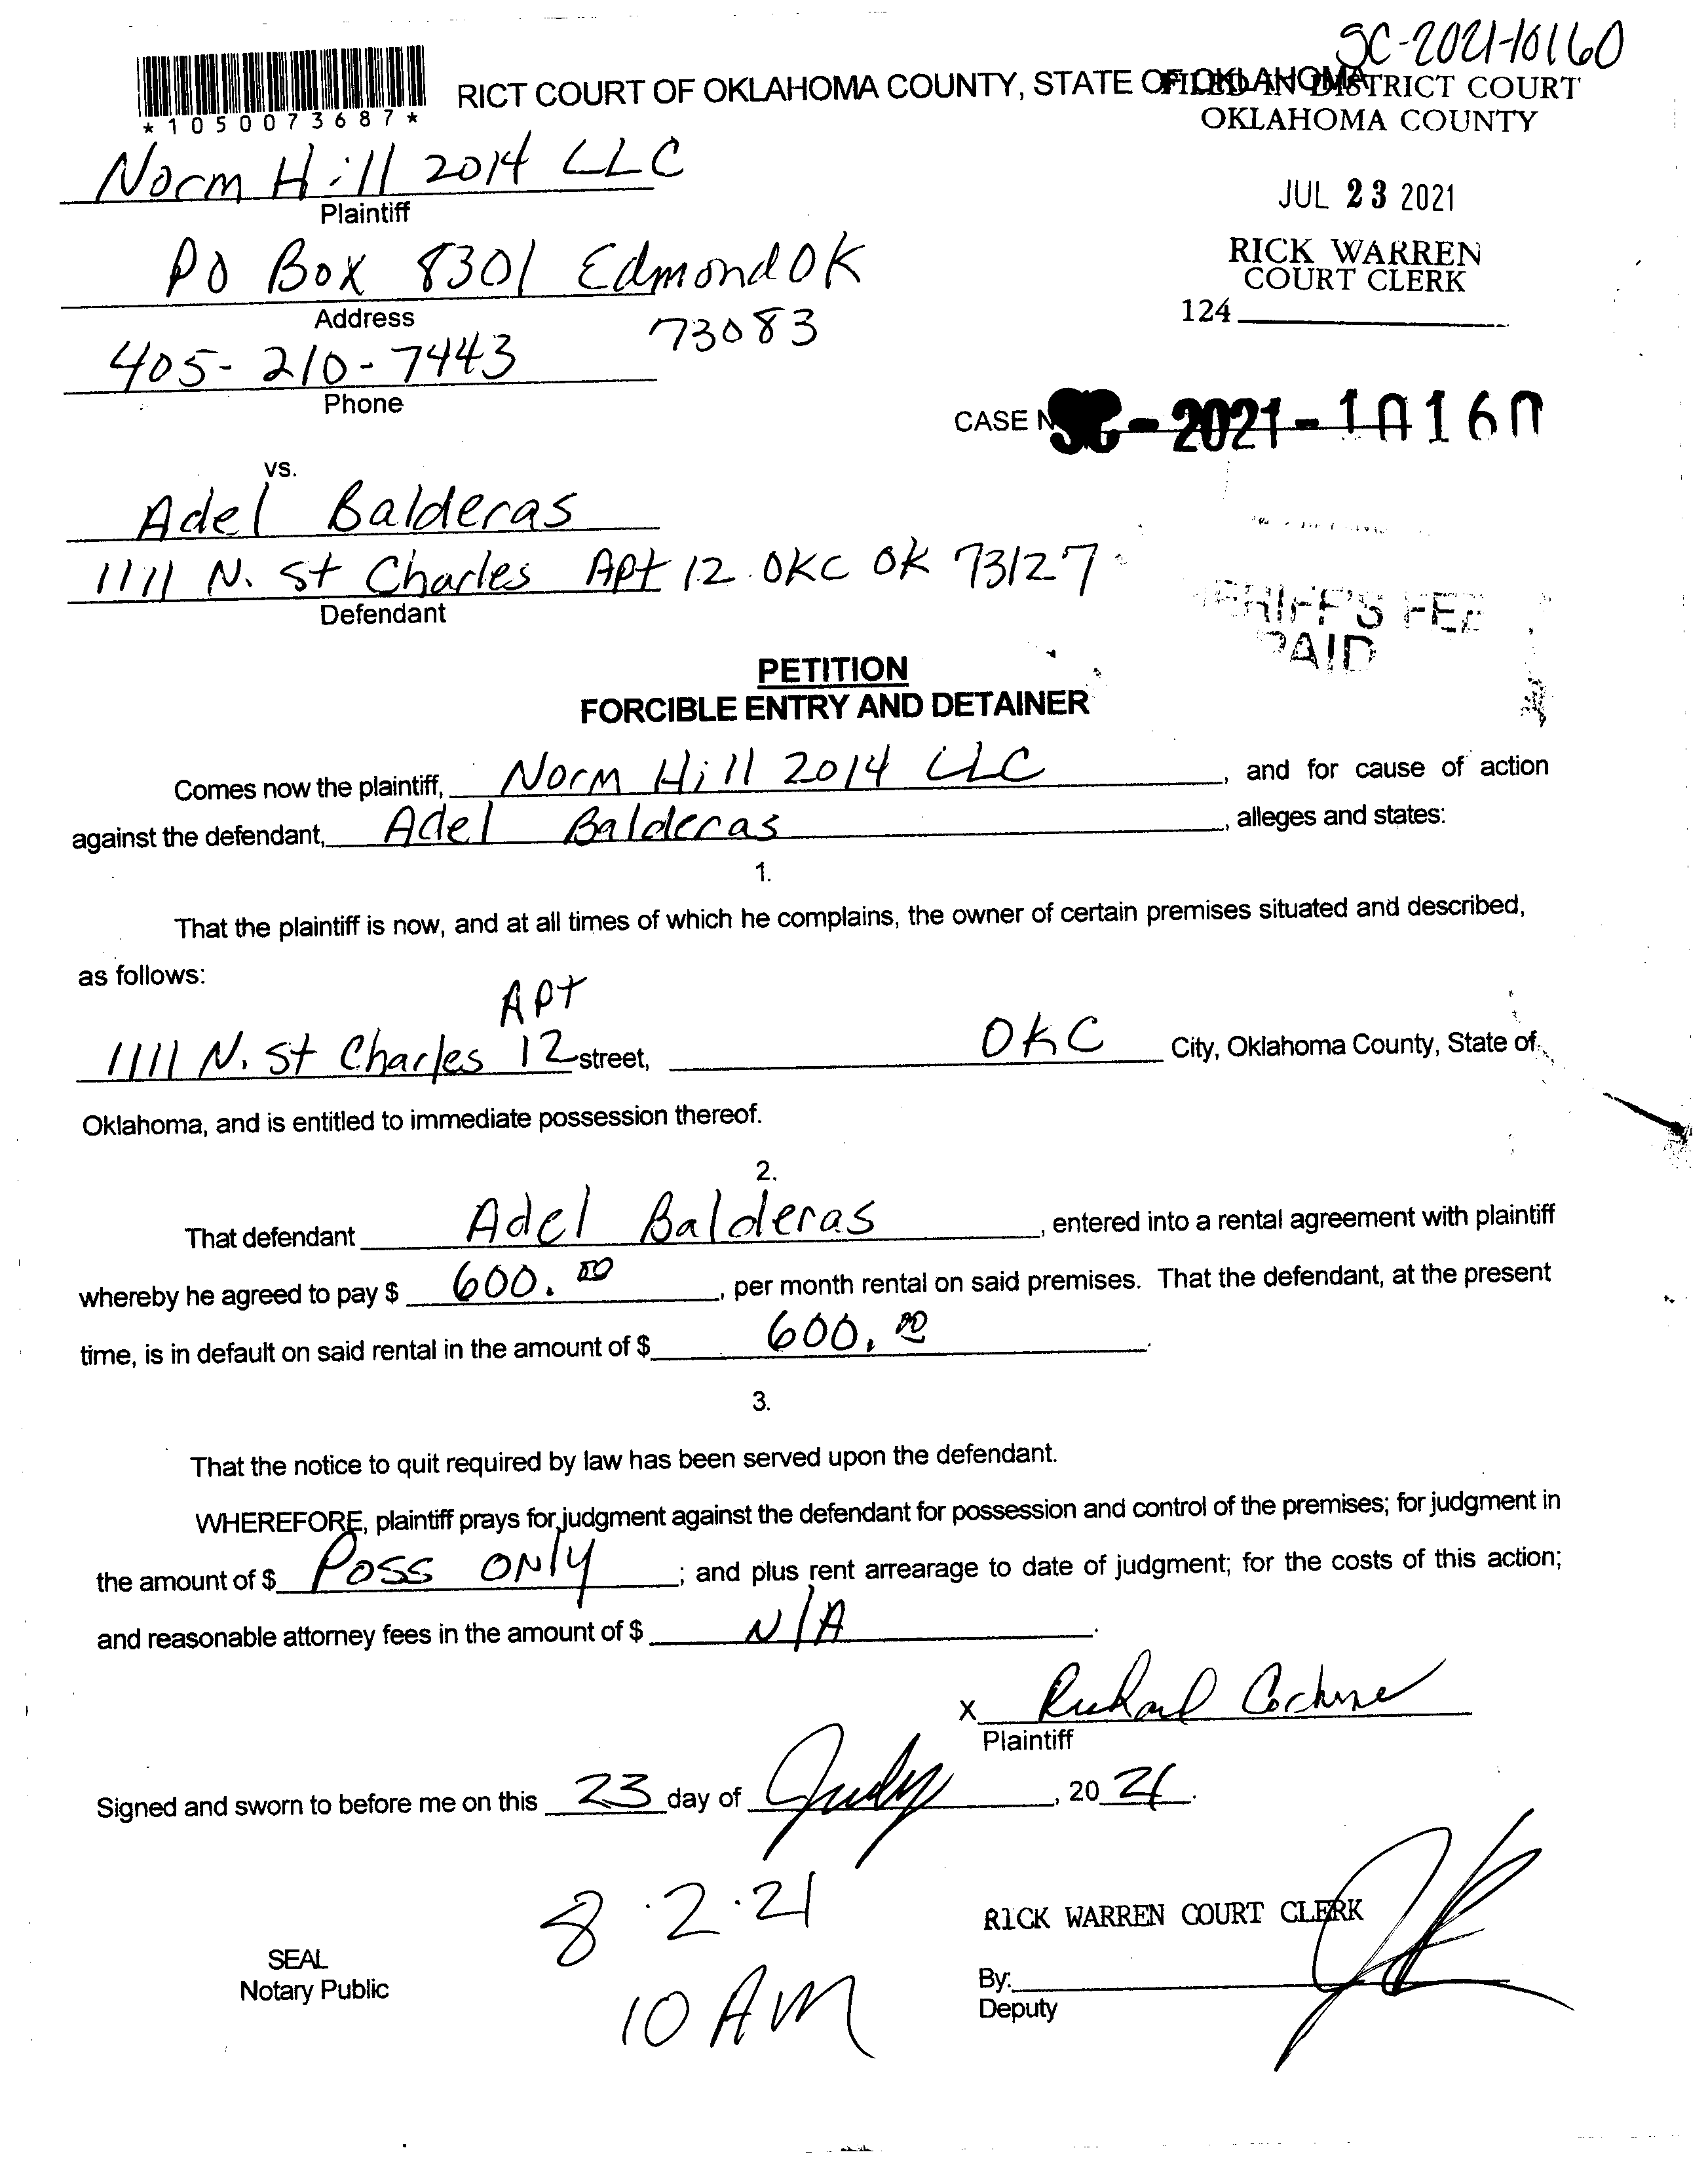 SC-2021-10160
RICT COURT OF OKLAHOMA COUNTY, STATE OF OKLAHOMA
FILED IN DISTRICT COURT
OKLAHOMA COUNTY
*1050073687*
Norm Hill 2014 LLC
Plaintiff
JUL 23 2021
PO Box 8301 Edmond OK
73083
Address
RICK WARREN
COURT CLERK
124
405-210-7443
Phone
CASE N SC-2021-10160
vs.
Adel Balderas
1111 N. St Charles Apt 12 OKC OK 73127
Defendant
SHERIFF'S FEE
PAID
PETITION
FORCIBLE ENTRY AND DETAINER
Comes now the plaintiff, Norm Hill 2014 LLC, and for cause of action
against the defendant, Adel Balderas, alleges and states:
1.
That the plaintiff is now, and at all times of which he complains, the owner of certain premises situated and described,
as follows:
Apt
1111 N. St Charles 12 street, OKC City, Oklahoma County, State of
Oklahoma, and is entitled to immediate possession thereof.
2.
That defendant Adel Balderas, entered into a rental agreement with plaintiff
whereby he agreed to pay $ 600.00, per month rental on said premises. That the defendant, at the present
time, is in default on said rental in the amount of $ 600.00.
3.
That the notice to quit required by law has been served upon the defendant.
WHEREFORE, plaintiff prays for judgment against the defendant for possession and control of the premises; for judgment in
the amount of $ Poss ONly; and plus rent arrearage to date of judgment; for the costs of this action;
and reasonable attorney fees in the amount of $ N/A.
X Richard Cochrane
Plaintiff
Signed and sworn to before me on this 23 day of July, 20 21.
8.2.21
10 AM
RICK WARREN COURT CLERK
SEAL
Notary Public
By:
Deputy